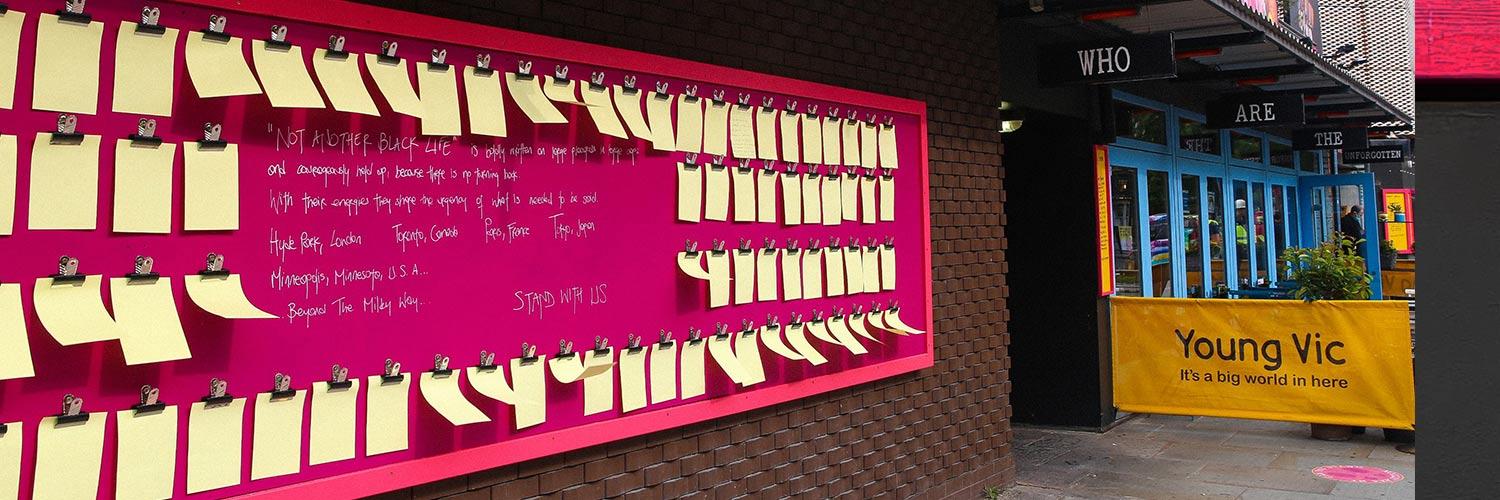 "NOT ANOTHER BLACK LIFE" is boldly written on large placards in large sizes
and courageously held up, because there is no turning back.
With their energies they share the urgency of what is needed to be said.
Hyde Park, London Toronto, Canada Paris, France Tokyo, Japan
Minneapolis, Minnesota, U.S.A...
...Beyond The Milky Way...
STAND WITH US
WHO
ARE
THE
THE
UNFORGOTTEN
Young Vic
It's a big world in here